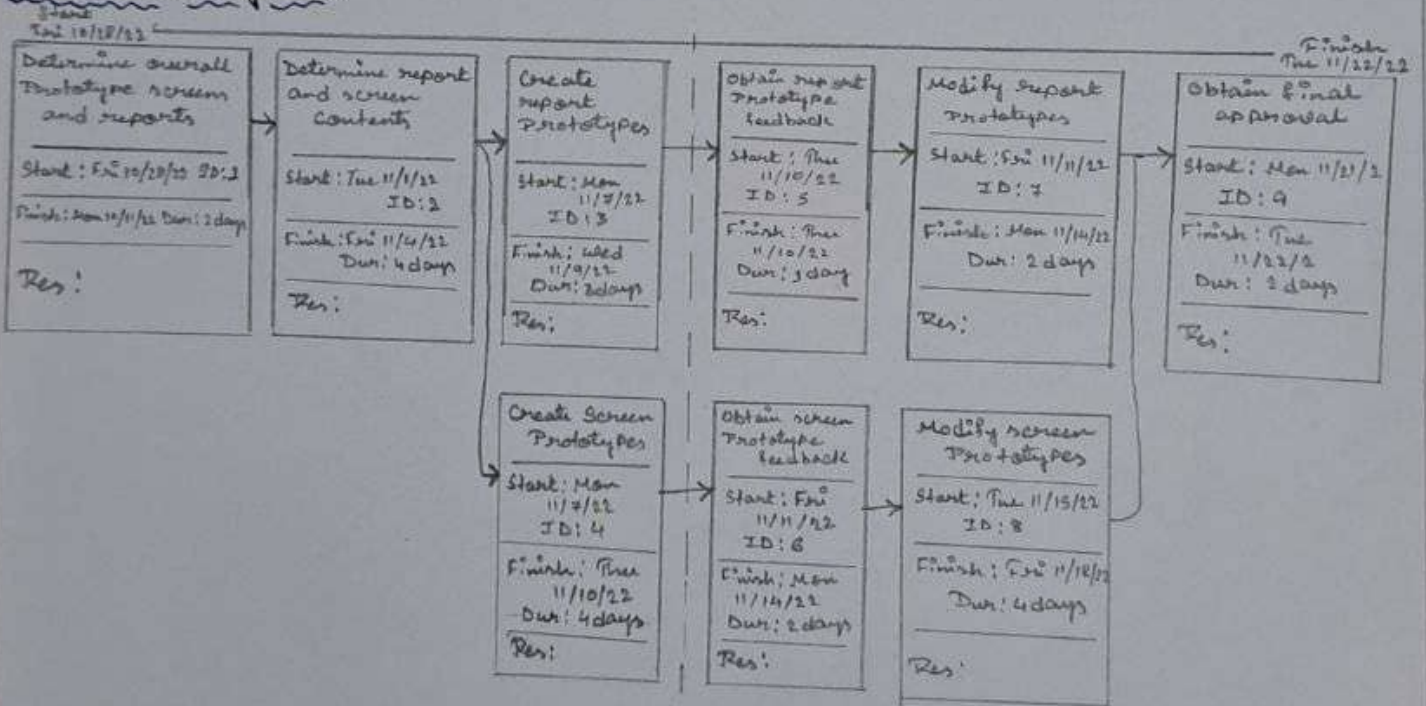 Start
Fri 10/28/22
Finish
Tue 11/22/22
Determine overall
Prototype screens
and reports
Start: Fri 10/28/22 ID:1
Finish: Mon 10/31/22 Dur: 2 days
Res:
Determine report
and screen
Contents
Start: Tue 11/1/22
ID: 2
Finish: Fri 11/4/22
Dur: 4 days
Res:
Create
report
Prototypes
Start: Mon
11/7/22
ID: 3
Finish: Wed
11/9/22
Dur: 3 days
Res:
Obtain report
Prototype
feedback
Start: Thu
11/10/22
ID: 5
Finish: Thu
11/10/22
Dur: 1 day
Res:
Modify report
Prototypes
Start: Fri 11/11/22
ID: 7
Finish: Mon 11/14/22
Dur: 2 days
Res:
Obtain final
approval
Start: Mon 11/21/2
ID: 9
Finish: Tue
11/22/2
Dur: 2 days
Res:
Create Screen
Prototypes
Start: Mon
11/7/22
ID: 4
Finish: Thu
11/10/22
Dur: 4 days
Res:
Obtain screen
Prototype
feedback
Start: Fri
11/11/22
ID: 6
Finish: Mon
11/14/22
Dur: 2 days
Res:
Modify screen
Prototypes
Start: Tue 11/15/22
ID: 8
Finish: Fri 11/18/22
Dur: 4 days
Res: